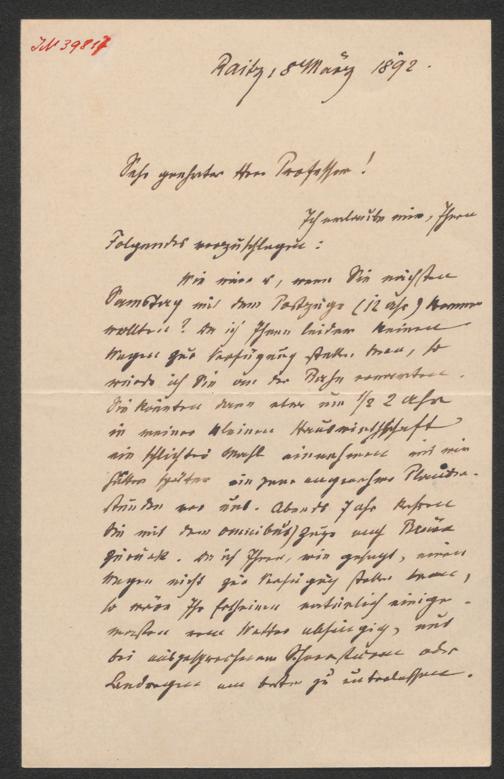 IN 3981
Raitz, 8 März 1892.
Sehr geehrter Herr Professor!
Ich erlaube mir, Ihnen
Folgendes vorzuschlagen:
Wie wäre es, wenn Sie nächsten
Samstag mit dem Postzuge (12 Uhr) kommen
wollten? Da ich Ihnen leider keinen
Wagen zur Verfügung stellen kann, so
würde ich Sie an der Bahn erwarten.
Sie könnten dann etwa um 1/2 2 Uhr
in meiner kleinen Hauswirthschaft
ein schlichtes Mahl einnehmen und wir
hätten später ein paar angenehme Plauder-
stunden vor uns. Abends 7 Uhr kehren
Sie mit dem Omnibuszuge nach Brünn
zurück. Da ich Ihnen, wie gesagt, einen
Wagen nicht zur Verfügung stellen kann,
so wäre Ihr Erscheinen natürlich einiger-
massen vom Wetter abhängig, und
bei ausgesprochenem Schneesturm oder
Landregen am besten zu unterlassen.